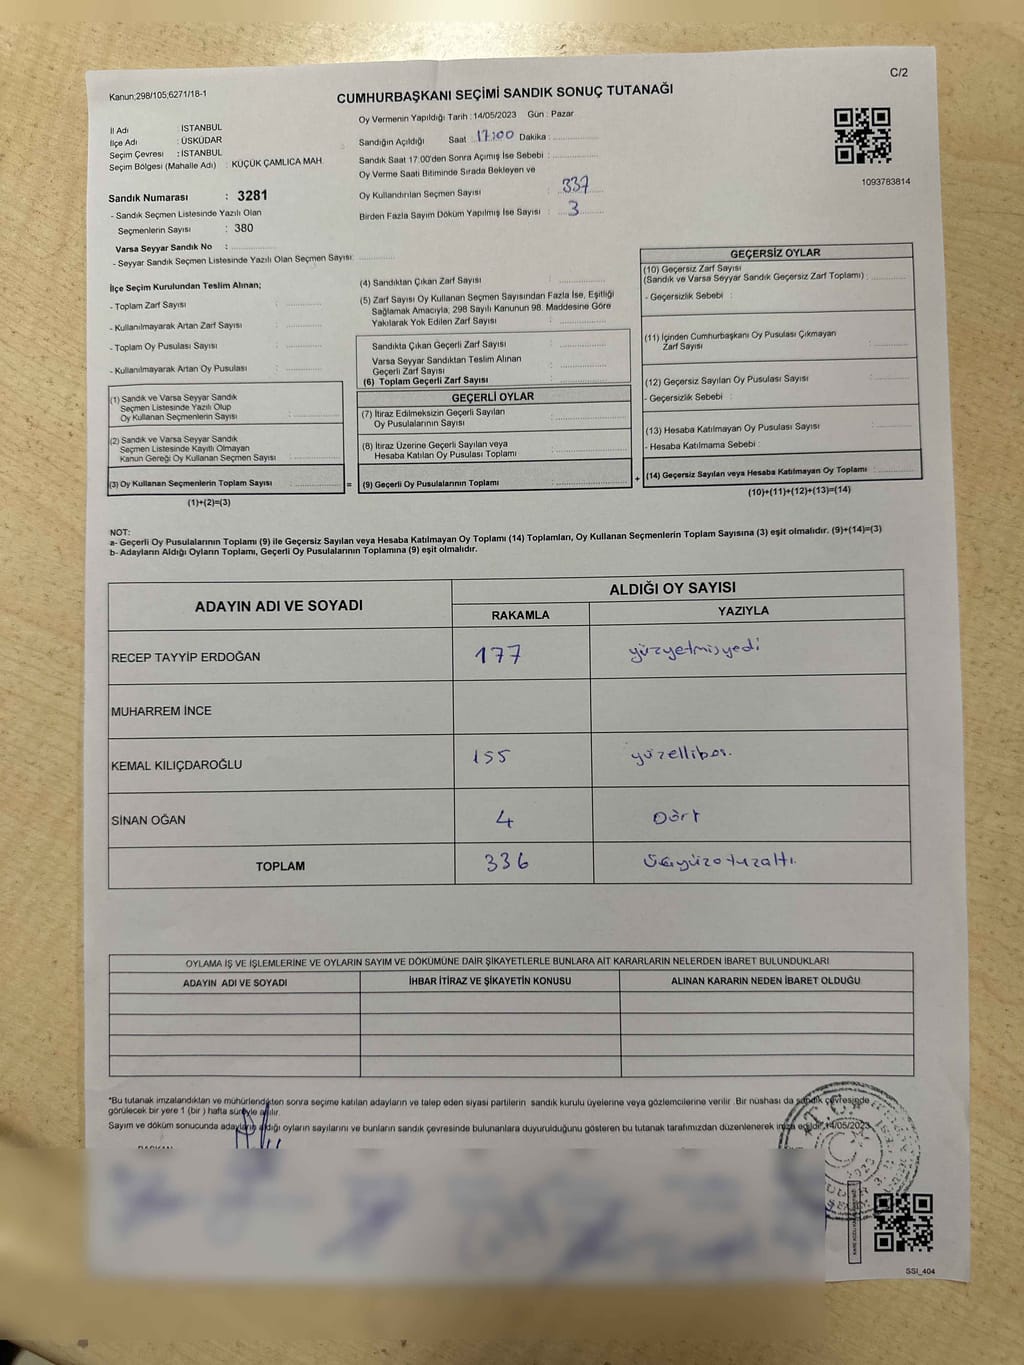 C/2
Kanun,298/105,6271/18-1
CUMHURBAŞKANI SEÇİMİ SANDIK SONUÇ TUTANAĞI
Oy Vermenin Yapıldığı Tarih : 14/05/2023 Gün : Pazar
İl Adı : İSTANBUL
İlçe Adı : ÜSKÜDAR
Seçim Çevresi : İSTANBUL
Seçim Bölgesi (Mahalle Adı) : KÜÇÜK ÇAMLICA MAH.
Sandığın Açıldığı Saat : 17:00 Dakika :
Sandık Saat 17:00'den Sonra Açımış İse Sebebi :
Oy Verme Saati Bitiminde Sırada Bekleyen ve
Oy Kullandırılan Seçmen Sayısı : 337
Birden Fazla Sayım Döküm Yapılmış İse Sayısı : 3
1093783814
Sandık Numarası : 3281
- Sandık Seçmen Listesinde Yazılı Olan
Seçmenlerin Sayısı : 380
Varsa Seyyar Sandık No :
- Seyyar Sandık Seçmen Listesinde Yazılı Olan Seçmen Sayısı:
İlçe Seçim Kurulundan Teslim Alınan;
- Toplam Zarf Sayısı :
- Kullanılmayarak Artan Zarf Sayısı :
- Toplam Oy Pusulası Sayısı :
- Kullanılmayarak Artan Oy Pusulası :
(1) Sandık ve Varsa Seyyar Sandık
Seçmen Listesinde Yazılı Olup
Oy Kullanan Seçmenlerin Sayısı :
(2) Sandık ve Varsa Seyyar Sandık
Seçmen Listesinde Kayıtlı Olmayan
Kanun Gereği Oy Kullanan Seçmen Sayısı :
(3) Oy Kullanan Seçmenlerin Toplam Sayısı :
(1)+(2)=(3)
(4) Sandıktan Çıkan Zarf Sayısı :
(5) Zarf Sayısı Oy Kullanan Seçmen Sayısından Fazla İse, Eşitliği
Sağlamak Amacıyla, 298 Sayılı Kanunun 98. Maddesine Göre
Yakılarak Yok Edilen Zarf Sayısı :
Sandıkta Çıkan Geçerli Zarf Sayısı :
Varsa Seyyar Sandıktan Teslim Alınan
Geçerli Zarf Sayısı :
(6) Toplam Geçerli Zarf Sayısı :
GEÇERLİ OYLAR
(7) İtiraz Edilmeksizin Geçerli Sayılan
Oy Pusulalarının Sayısı :
(8) İtiraz Üzerine Geçerli Sayılan veya
Hesaba Katılan Oy Pusulası Toplamı :
= (9) Geçerli Oy Pusulalarının Toplamı :
GEÇERSİZ OYLAR
(10) Geçersiz Zarf Sayısı
(Sandık ve Varsa Seyyar Sandık Geçersiz Zarf Toplamı) :
- Geçersizlik Sebebi :
(11) İçinden Cumhurbaşkanı Oy Pusulası Çıkmayan
Zarf Sayısı :
(12) Geçersiz Sayılan Oy Pusulası Sayısı :
- Geçersizlik Sebebi :
(13) Hesaba Katılmayan Oy Pusulası Sayısı :
- Hesaba Katılmama Sebebi :
+ (14) Geçersiz Sayılan veya Hesaba Katılmayan Oy Toplamı :
(10)+(11)+(12)+(13)=(14)
NOT:
a- Geçerli Oy Pusulalarının Toplamı (9) ile Geçersiz Sayılan veya Hesaba Katılmayan Oy Toplamı (14) Toplamları, Oy Kullanan Seçmenlerin Toplam Sayısına (3) eşit olmalıdır. (9)+(14)=(3)
b- Adayların Aldığı Oyların Toplamı, Geçerli Oy Pusulalarının Toplamına (9) eşit olmalıdır.
ADAYIN ADI VE SOYADI
ALDIĞI OY SAYISI
RAKAMLA YAZIYLA
RECEP TAYYİP ERDOĞAN 177 yüzyetmişyedi
MUHARREM İNCE
KEMAL KILIÇDAROĞLU 155 yüzellibeş.
SİNAN OĞAN 4 Dört
TOPLAM 336 Üçyüzotuzaltı.
OYLAMA İŞ VE İŞLEMLERİNE VE OYLARIN SAYIM VE DÖKÜMÜNE DAİR ŞİKAYETLERLE BUNLARA AİT KARARLARIN NELERDEN İBARET BULUNDUKLARI
ADAYIN ADI VE SOYADI İHBAR İTİRAZ VE ŞİKAYETİN KONUSU ALINAN KARARIN NEDEN İBARET OLDUĞU
*Bu tutanak imzalandıktan ve mühürlendikten sonra seçime katılan adayların ve talep eden siyasi partilerin sandık kurulu üyelerine veya gözlemcilerine verilir .Bir nüshası da sandık çevresinde
görülecek bir yere 1 (bir ) hafta süreyle asılır.
Sayım ve döküm sonucunda adayların aldığı oyların sayılarını ve bunların sandık çevresinde bulunanlara duyurulduğunu gösteren bu tutanak tarafımızdan düzenlenerek imza edildi. 14/05/2023
T.C.
SSI_404